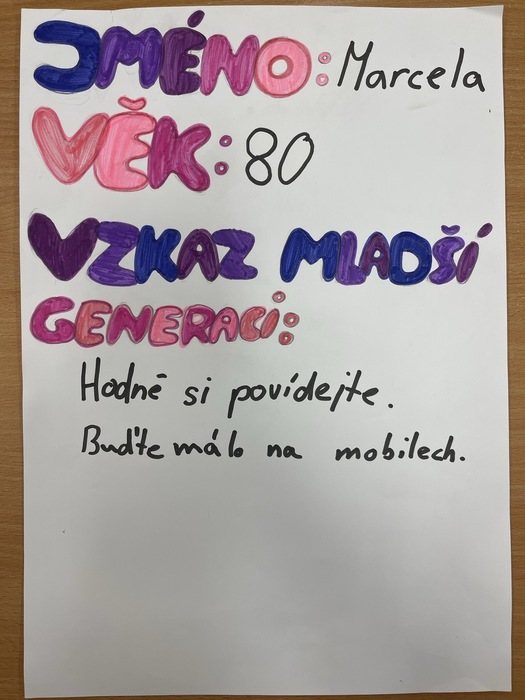 JMÉNO: Marcela
VĚK: 80
VZKAZ MLADŠÍ
GENERACI:
Hodně si povídejte.
Buďte málo na mobilech.